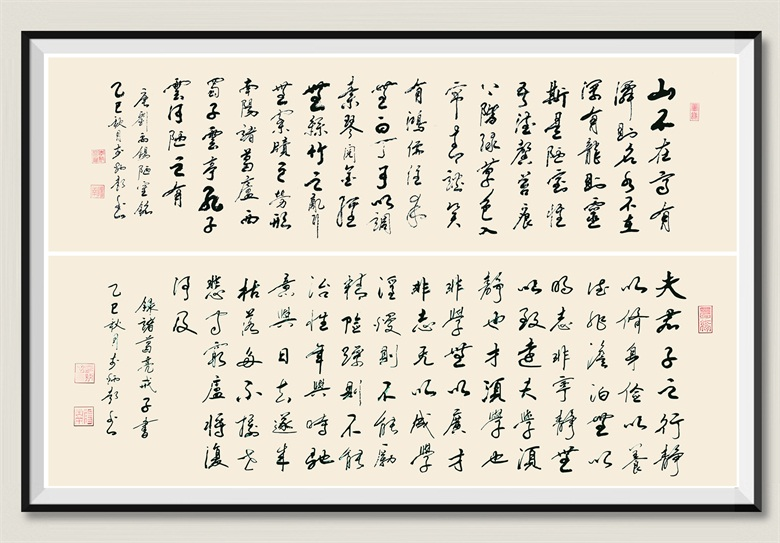 山不在高有
僊則名水不在
深有龍則靈
斯是陋室惟
吾德馨苔痕
上階綠草色入
簾青談笑
有鴻儒往來
無白丁可以調
素琴閱金經
無絲竹之亂耳
無案牘之勞形
南陽諸葛廬西
蜀子雲亭孔子
雲何陋之有
唐劉禹錫陋室銘
乙巳秋月書
夫君子之行靜
以脩身儉以養
德非澹泊無以
明志非寧靜無
以致遠夫學須
靜也才須學也
非學無以廣才
非志無以成學
淫慢則不能勵
精險躁則不能
治性年與時馳
意與日去遂成
枯落多不接世
悲守窮廬將復
何及
錄諸葛亮戒子書
乙巳秋月書